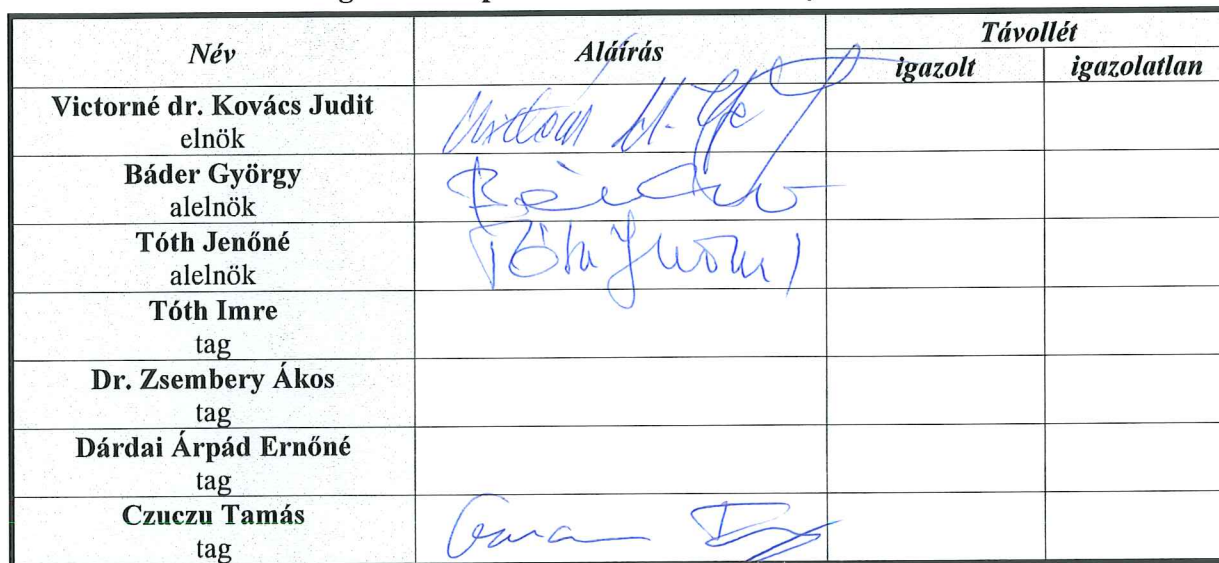 Név Aláírás Távollét
igazolt igazolatlan
Victorné dr. Kovács Judit
elnök
Báder György
alelnök
Tóth Jenőné
alelnök
Tóth Jenőné
Tóth Imre
tag
Dr. Zsembery Ákos
tag
Dárdai Árpád Ernőné
tag
Czuczu Tamás
tag